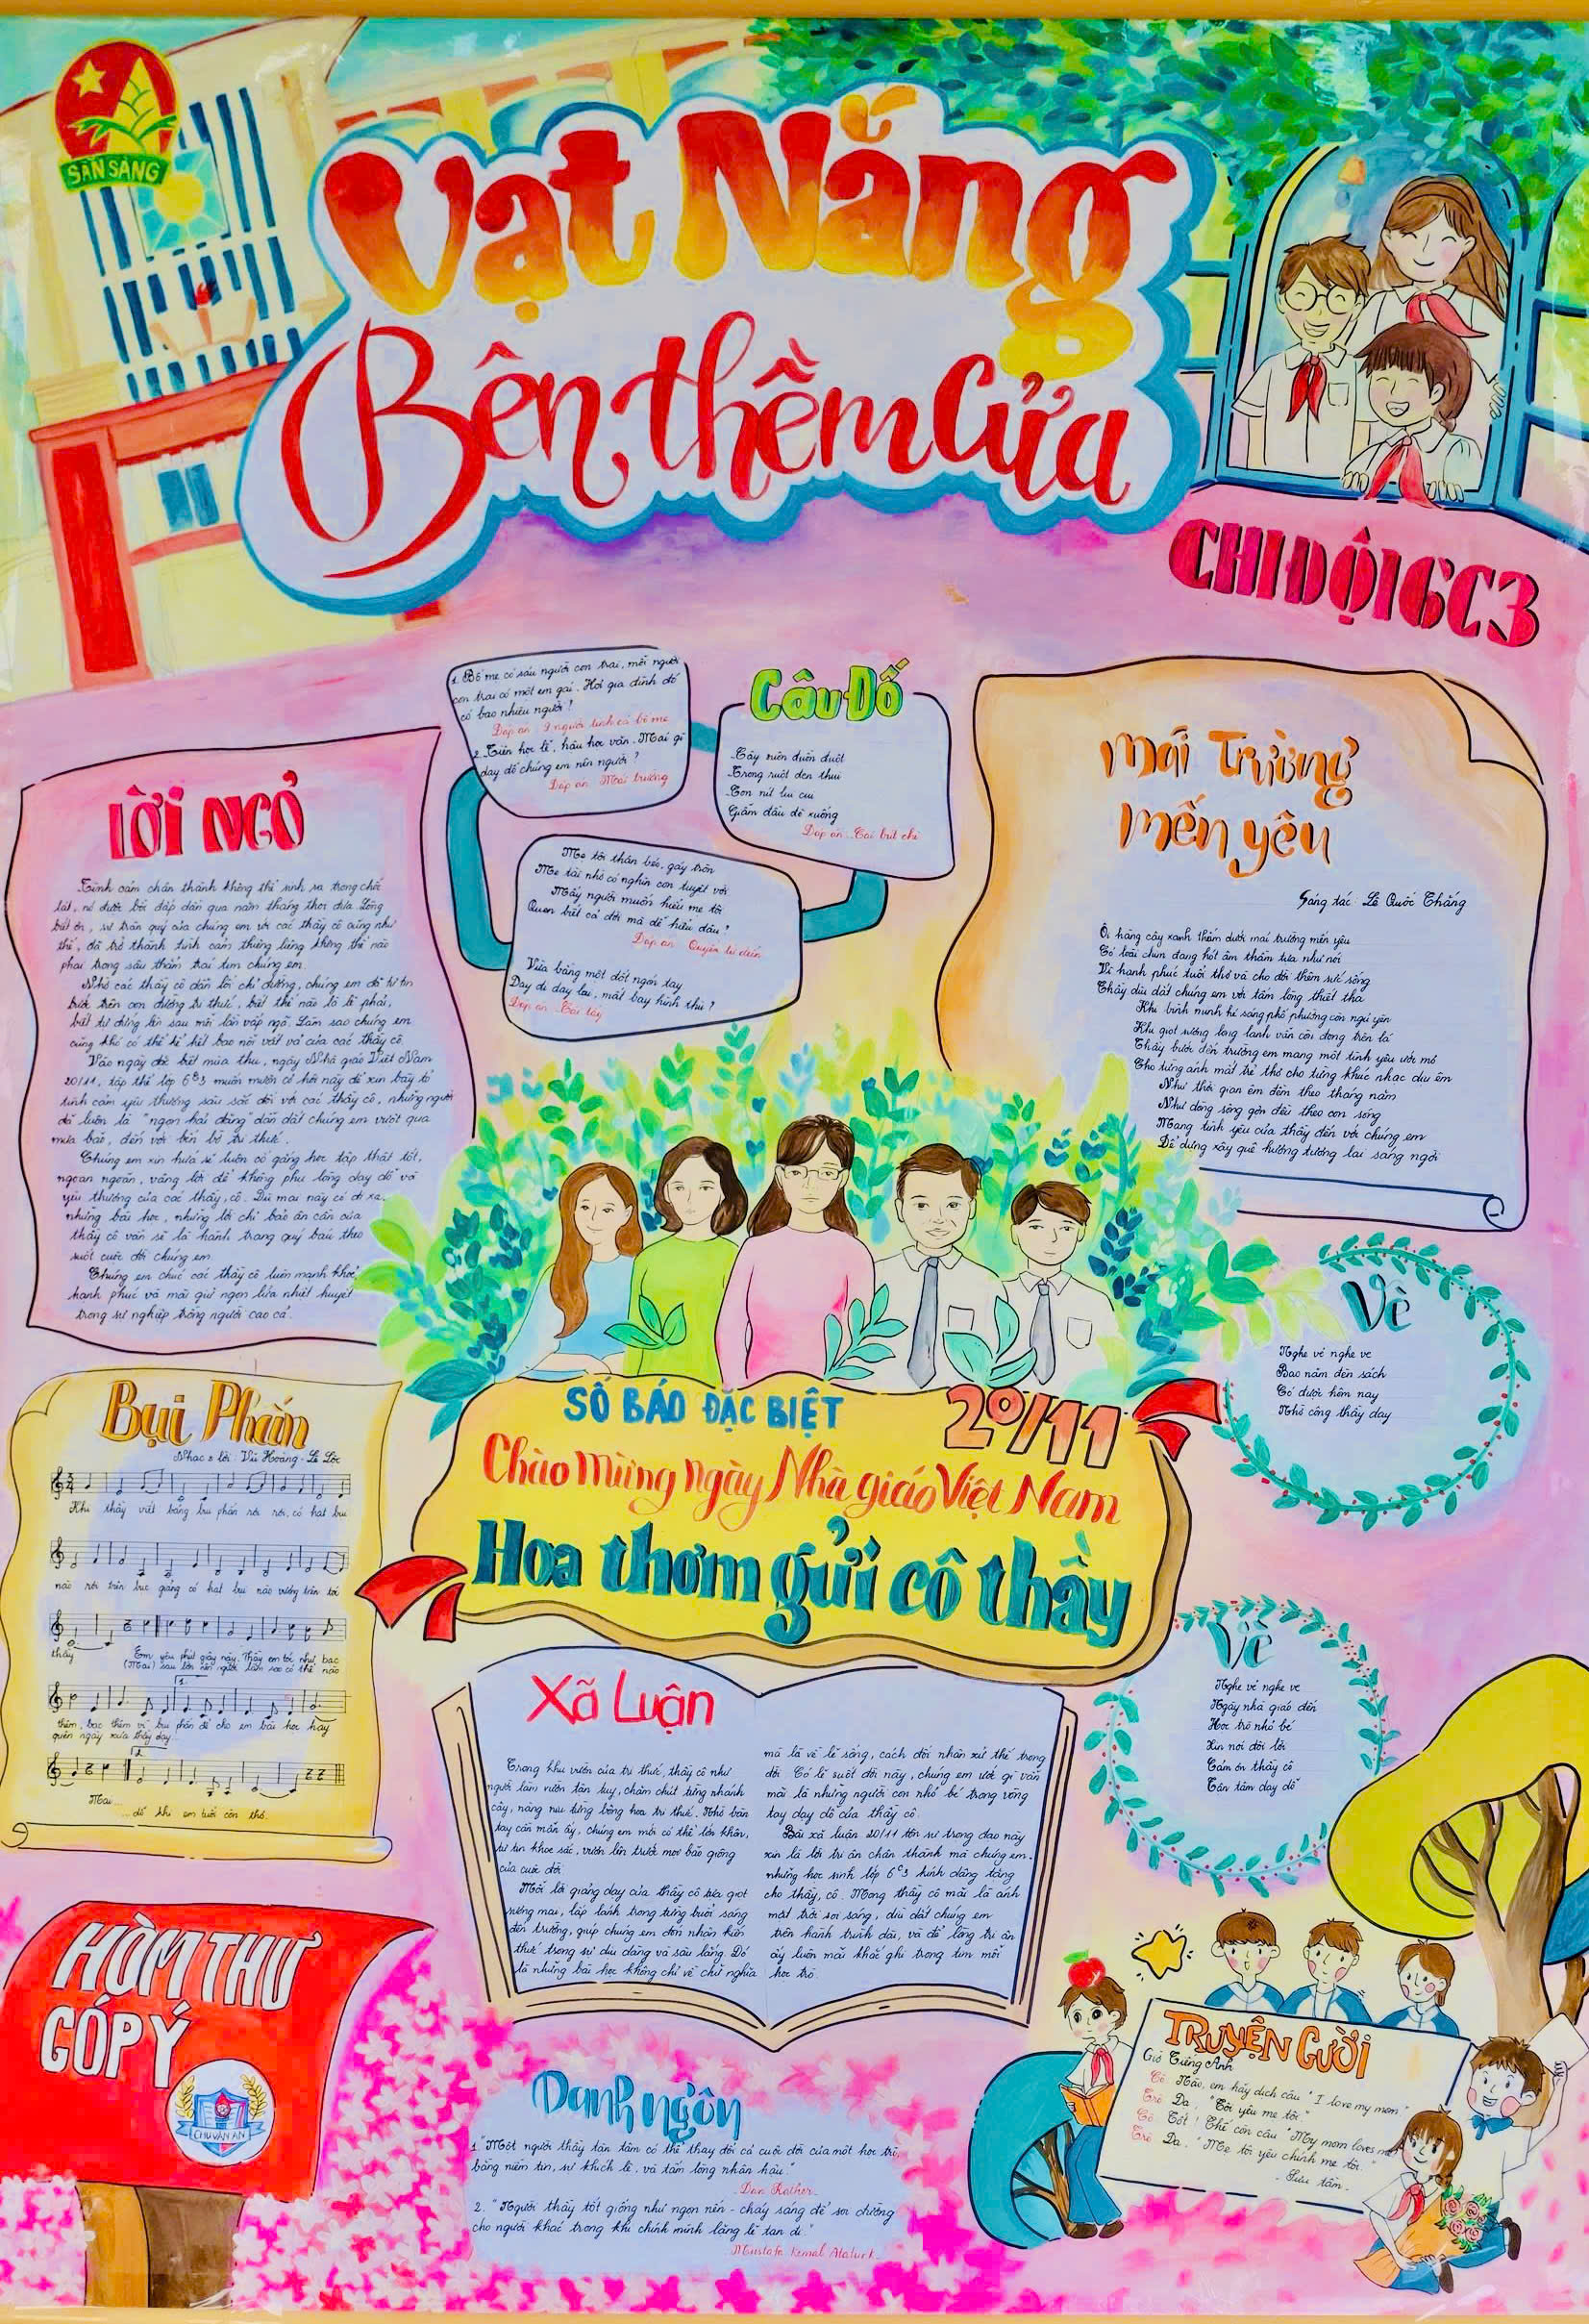 SẴN SÀNG
Vạt Nắng
Bên thềm Cửa
CHI ĐỘI 6C3
1. Bố mẹ có sáu người con trai, mỗi người
con trai có một em gái. Hỏi gia đình đó
có bao nhiêu người?
Đáp án: 9 người tính cả bố mẹ
2. Tiên học lễ, hậu học văn. Mái gì
dạy dỗ chúng em nên người?
Đáp án: Mái trường
Câu Đố
Cây niên đuồn đuột
Trong ruột đen thui
Con nít lui cui
Giẫm đầu đè xuống
Đáp án: Cái bút chì
Mẹ tôi thân béo, gáy tròn
Mẹ tài nhỏ có nghìn con tuyệt vời
Mấy người muốn hiểu mẹ tôi
Quen biết cả đời mà dễ hiểu đâu?
Đáp án: Quyển từ điển
Vừa bằng một đốt ngón tay
Day đi day lại, mất bay hình thù?
Đáp án: Cái tẩy
LỜI NGỎ
Tình cảm chân thành không thể sinh ra trong chốc
lát, nó được bồi đắp dần qua năm tháng thoi đưa. Lòng
biết ơn, sự trân quý của chúng em với các thầy cô cũng như
thế, đã trở thành tình cảm thiêng liêng không thể nào
phai trong sâu thẳm trái tim chúng em.
Nhờ các thầy cô dẫn lối chỉ đường, chúng em đã tự tin
bước trên con đường tri thức, biết thế nào là lẽ phải,
biết tự đứng lên sau mỗi lần vấp ngã. Làm sao chúng em
cũng khó có thể kể hết bao nỗi vất vả của các thầy cô.
Vào ngày đặc biệt mùa thu, ngày Nhà giáo Việt Nam
20/11, tập thể lớp 6C3 muốn mượn cơ hội này để xin bày tỏ
tình cảm yêu thương sâu sắc đối với các thầy cô, những người
đã luôn là "ngọn hải đăng" dẫn dắt chúng em vượt qua
mưa bão, đến với bến bờ tri thức.
Chúng em xin hứa sẽ luôn cố gắng học tập thật tốt,
ngoan ngoãn, vâng lời để không phụ lòng dạy dỗ và
yêu thương của các thầy, cô. Dù mai này có đi xa,
những bài học, những lời chỉ bảo ân cần của
thầy cô vẫn sẽ là hành trang quý báu theo
suốt cuộc đời chúng em.
Chúng em chúc các thầy cô luôn mạnh khỏe,
hạnh phúc và mãi giữ ngọn lửa nhiệt huyết
trong sự nghiệp trồng người cao cả.
Mái Trường
Mến yêu
Sáng tác: Lê Quốc Thắng
Ôi hàng cây xanh thắm dưới mái trường mến yêu
Có loài chim đang hót âm thầm tựa như nói
Vì hạnh phúc tuổi thơ và cho đời thêm sức sống
Thầy dìu dắt chúng em với tấm lòng thiết tha
Khi bình minh hé sáng phố phường còn ngủ yên
Khi giọt sương long lanh vẫn còn đọng trên lá
Thầy bước đến trường em mang một tình yêu ước mơ
Cho từng ánh mắt trẻ thơ cho từng khúc nhạc dịu êm
Như thời gian êm đềm theo tháng năm
Như dòng sông gợn đều theo con sóng
Mang tình yêu của thầy đến với chúng em
Để dựng xây quê hương tương lai sáng ngời
Vè
Nghe vẻ nghe ve
Bao năm đèn sách
Có được hôm nay
Nhờ công thầy dạy
SỐ BÁO ĐẶC BIỆT 20/11
Chào mừng ngày Nhà giáo Việt Nam
Hoa thơm gửi cô thầy
Bụi Phấn
Nhạc & lời: Vũ Hoàng - Lê Lộc
Khi thầy viết bảng bụi phấn rơi rơi, có hạt bụi
nào rơi trên bục giảng có hạt bụi nào vương trên tóc
thầy Em yêu phút giây này. Thầy em tóc như bạc
(Mai) sau lớn nên người làm sao có thể nào
thêm, bạc thêm vì bụi phấn để cho em bài học hay
quên ngày xưa thầy dạy
Mai
dỗ khi em tuổi còn thơ.
Vè
Nghe vẻ nghe ve
Ngày nhà giáo đến
Học trò nhỏ bé
Xin nói đôi lời
Cảm ơn thầy cô
Tận tâm dạy dỗ
Xã Luận
Trong khu vườn của tri thức, thầy cô như
người làm vườn tận tụy, chăm chút từng nhánh
cây, nâng niu từng bông hoa tri thức. Nhờ bàn
tay cần mẫn ấy, chúng em mới có thể lớn khôn,
tự tin khoe sắc, vươn lên trước mọi bão giông
của cuộc đời.
Mỗi lời giảng dạy của thầy cô tựa giọt
sương mai, lấp lánh trong từng buổi sáng
đến trường, giúp chúng em đón nhận kiến
thức trong sự dịu dàng và sâu lắng. Đó
là những bài học không chỉ về chữ nghĩa
mà là về lẽ sống, cách đối nhân xử thế trong
đời. Có lẽ suốt đời này, chúng em ước gì vẫn
mãi là những người con nhỏ bé trong vòng
tay dạy dỗ của thầy cô.
Bài xã luận 20/11 tôn sư trọng đạo này
xin là lời tri ân chân thành mà chúng em,
những học sinh lớp 6C3 kính dâng tặng
cho thầy, cô. Mong thầy cô mãi là ánh
mặt trời soi sáng, dìu dắt chúng em
trên hành trình dài, và để lòng tri ân
ấy luôn mãi khắc ghi trong tim mỗi
học trò.
HÒM THƯ
GÓP Ý
CHU VĂN AN
Danh ngôn
1. "Một người thầy tận tâm có thể thay đổi cả cuộc đời của một học trò,
bằng niềm tin, sự khích lệ, và tấm lòng nhân hậu."
Dan Rather
2. "Người thầy tốt giống như ngọn nến - cháy sáng để soi đường
cho người khác trong khi chính mình lặng lẽ tan đi."
Mustafa Kemal Ataturk
TRUYỆN CƯỜI
Giờ Tiếng Anh
Cô: Nào, em hãy dịch câu "I love my mom"
Trò: Dạ, "Tôi yêu mẹ tôi."
Cô: Tốt! Thế còn câu "My mom loves me"
Trò: Dạ, "Mẹ tôi yêu chính mẹ tôi."
- Sưu tầm -